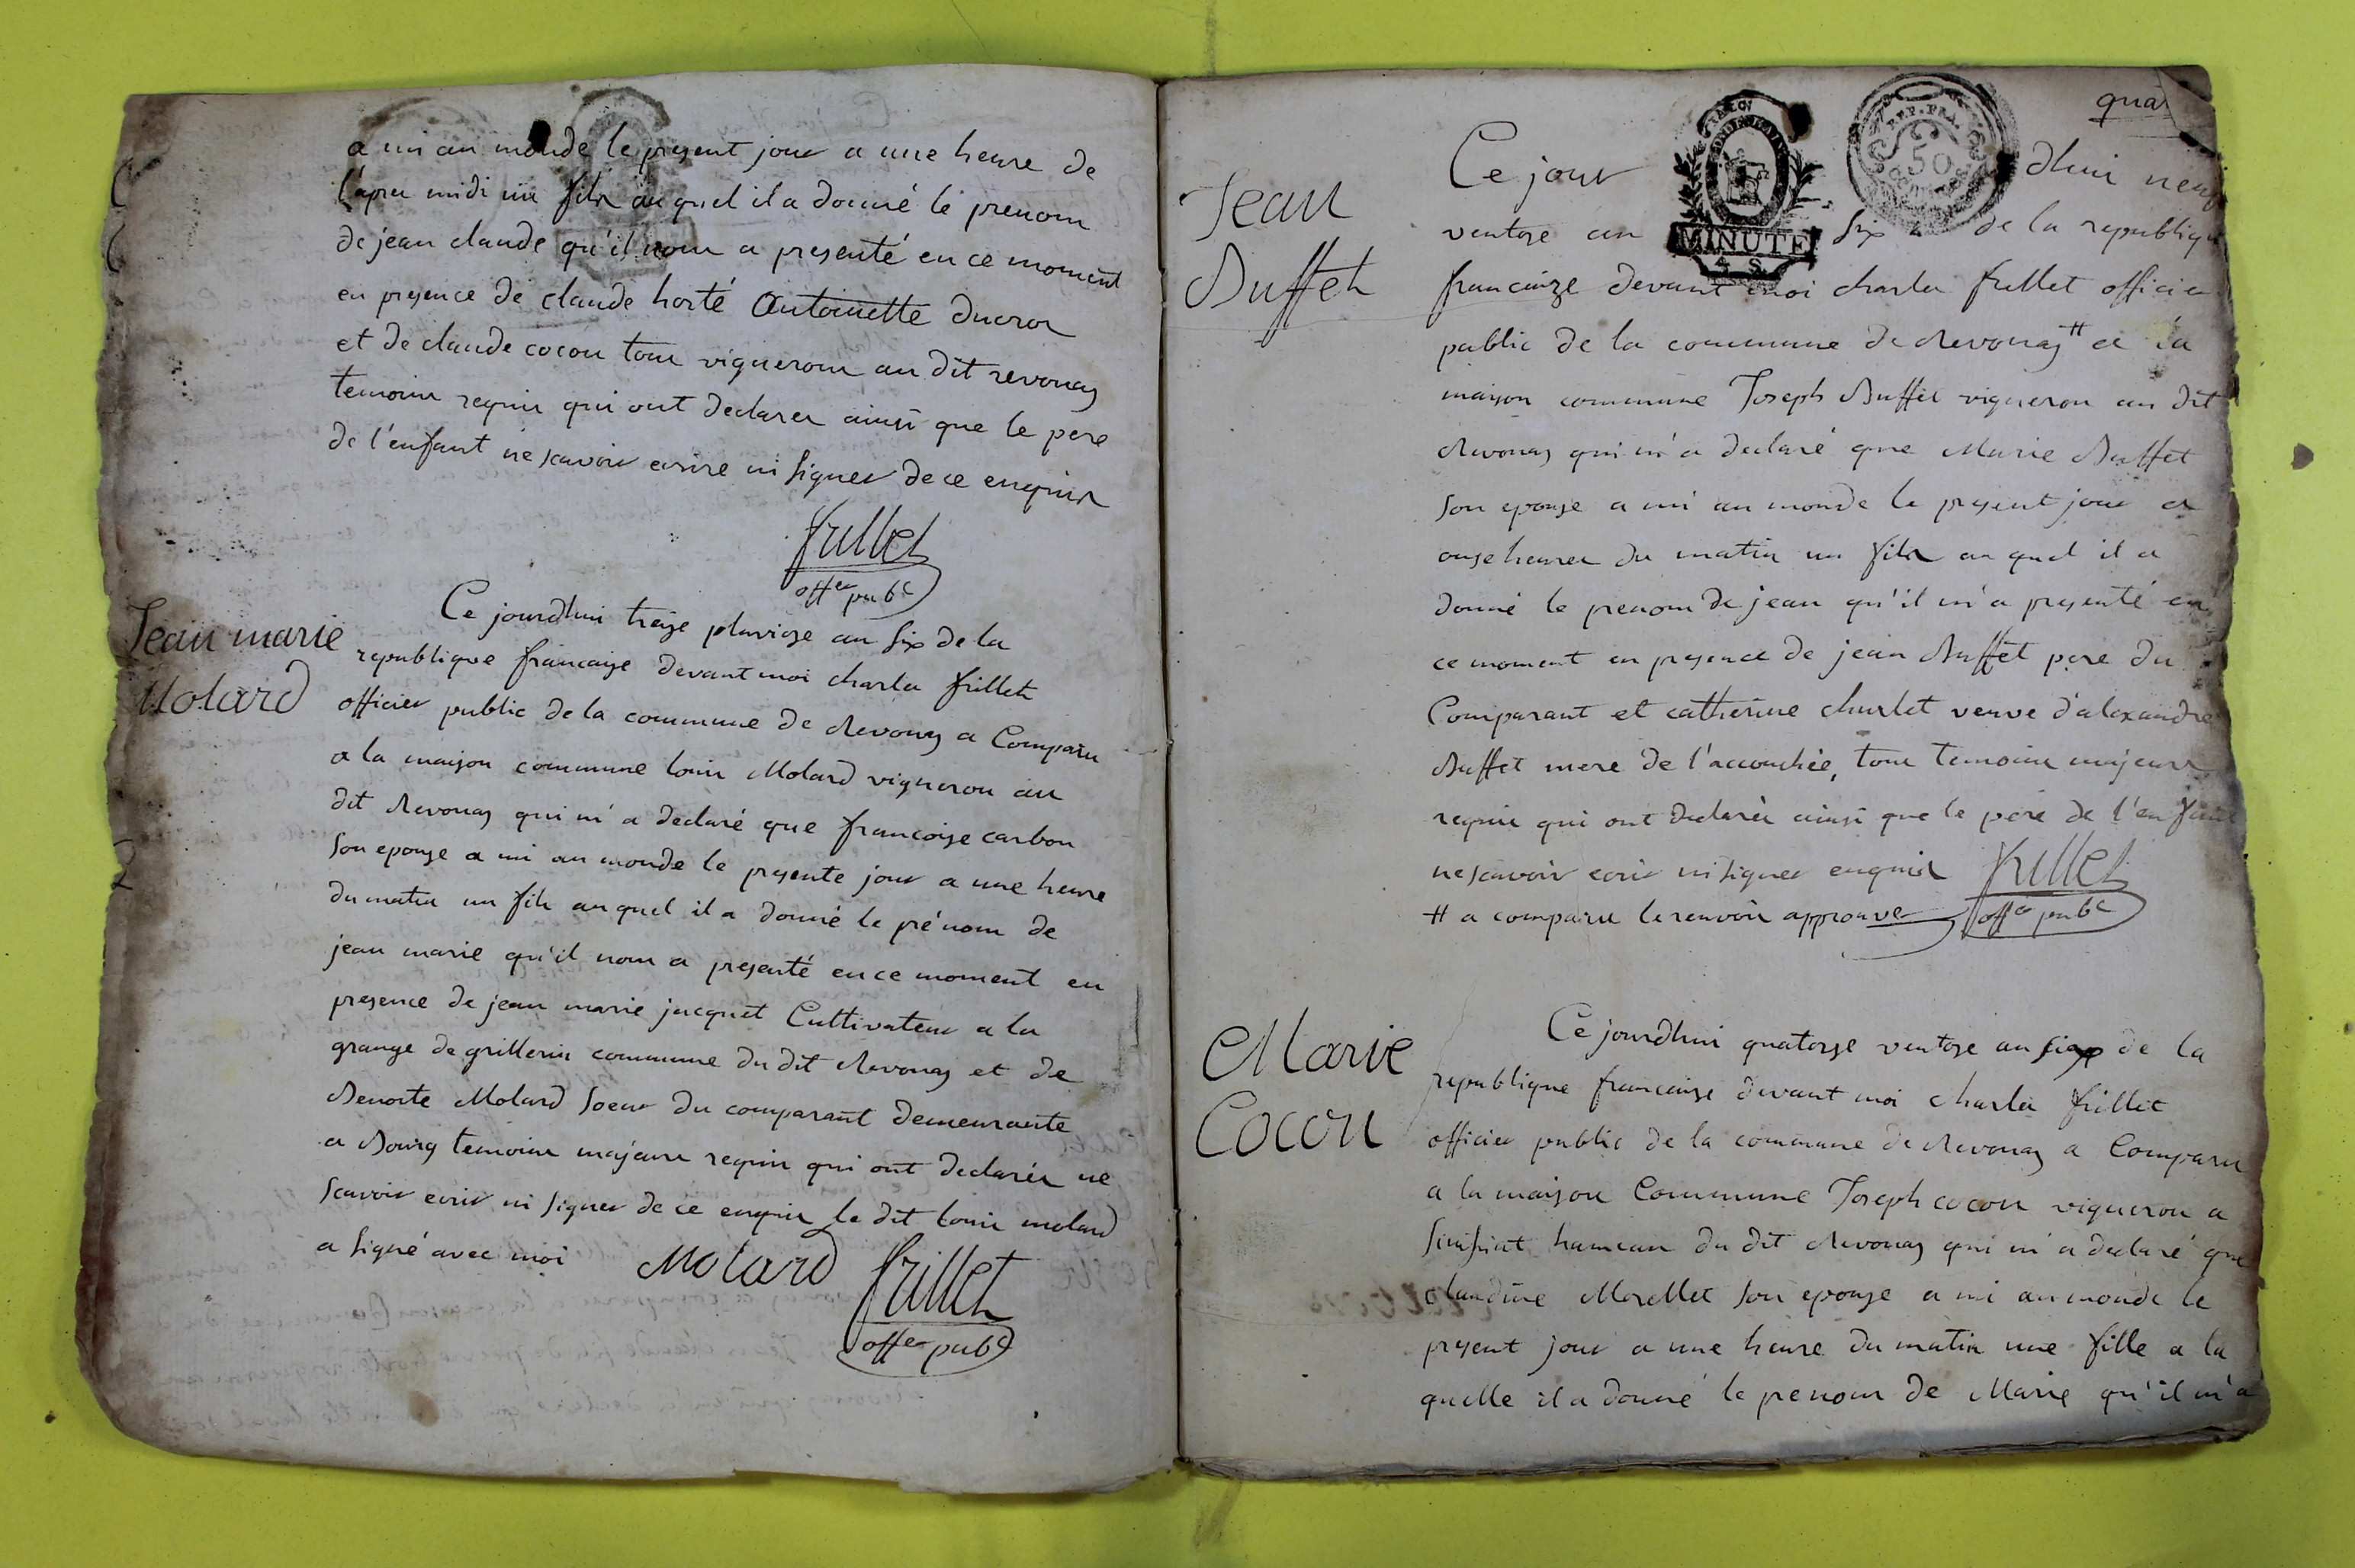 a mi au monde le present jour a une heure de
l'apres midi un fils au quel il a donné le prenom
de jean claude qu'il nous a presenté en ce moment
en presence de claude horté Antoinette ducros
et de claude cocon tous vignerons au dit revonas
temoins requis qui ont declarer ainsi que le pere
de l'enfant ne scavoir ecrire ni signer de ce enquis
frillet
offer pubc
Jean marie
Molard
Ce jourdhui treize pluviose an six de la
republique francaise devant moi charles frillet
officier public de la commune de Revonas a Comparu
a la maison commune louis Molard vigneron au
dit Revonas qui m'a declaré que francoise carbon
son epouse a mi au monde le presente jour a une heure
du matin un fils au quel il a donné le prénom de
jean marie qu'il nous a presenté en ce moment en
presence de jean marie jacquet Cultivateur a la
grange de grillerin commune du dit Revonas et de
Benoite Molard soeur du comparant demeurante
a Bourg temoins majeurs requis qui ont declarés ne
scavoir ecrir ni signer de ce enquis le dit louis molard
a signé avec moi Molard frillet
offer pubc
qua
Jean
Buffet
Ce jour dhui neuf
REP. FRA.
50
MINUTE
4 S
ventose an six de la republique
francaise devant moi charles frillet officier
public de la commune de Revonas # a la
maison commune Joseph Buffet vigneron au dit
Revonas qui m'a declaré que Marie Buffet
son epouse a mi au monde le present jour a
onze heures du matin un fils au quel il a
donné le prenom de jean qu'il m'a presenté en
ce moment en presence de jean Buffet pere du
Comparant et catherine churlet veuve d'alexandre
Buffet mere de l'accouchée, tous temoins majeurs
requis qui ont declarés ainsi que le pere de l'enfant
ne scavoir ecrir ni signer enquis frillet
# a comparu le renvoi approuvé offer pubc
Marie
Cocon
Ce jourdhui quatorze ventose an six de la
republique francaise devant moi charles frillet
officier public de la commune de Revonas a Comparu
a la maison Commune Joseph cocon vigneron a
Senissiat hameau du dit Revonas qui m'a declaré que
claudine Morellet son epouse a mi au monde le
present jour a une heure du matin une fille a la
quelle il a donné le prenom de Marie qu'il m'a